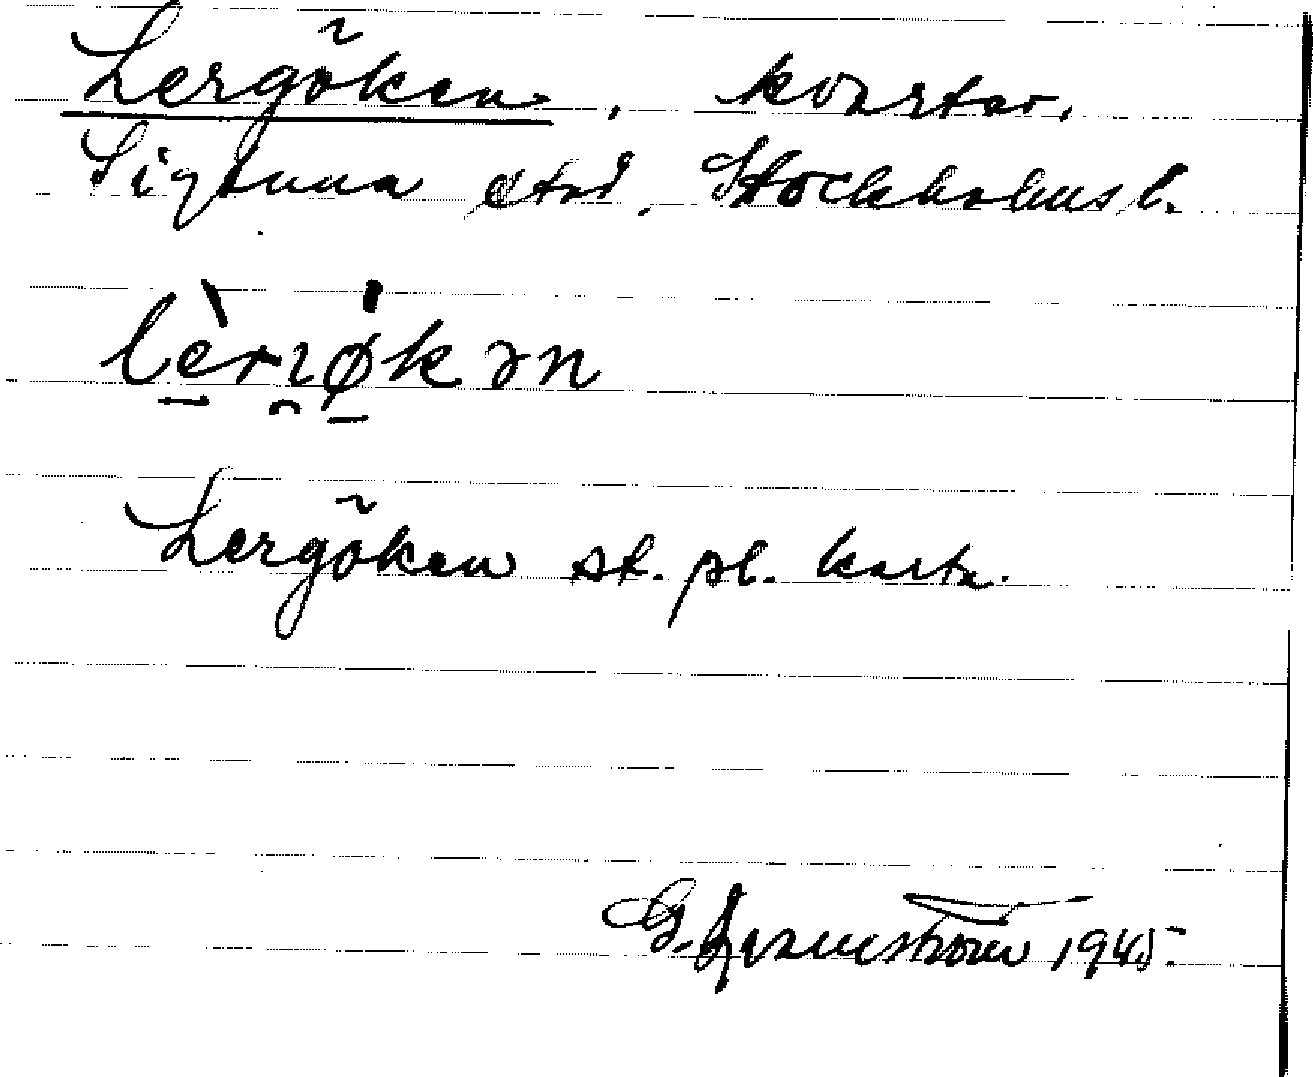 Lergöken, kvarter.
Sigtuna stad, Stockholms l.
lèrıø̍kən
Lergöken st. pl. karta.
G. 1945